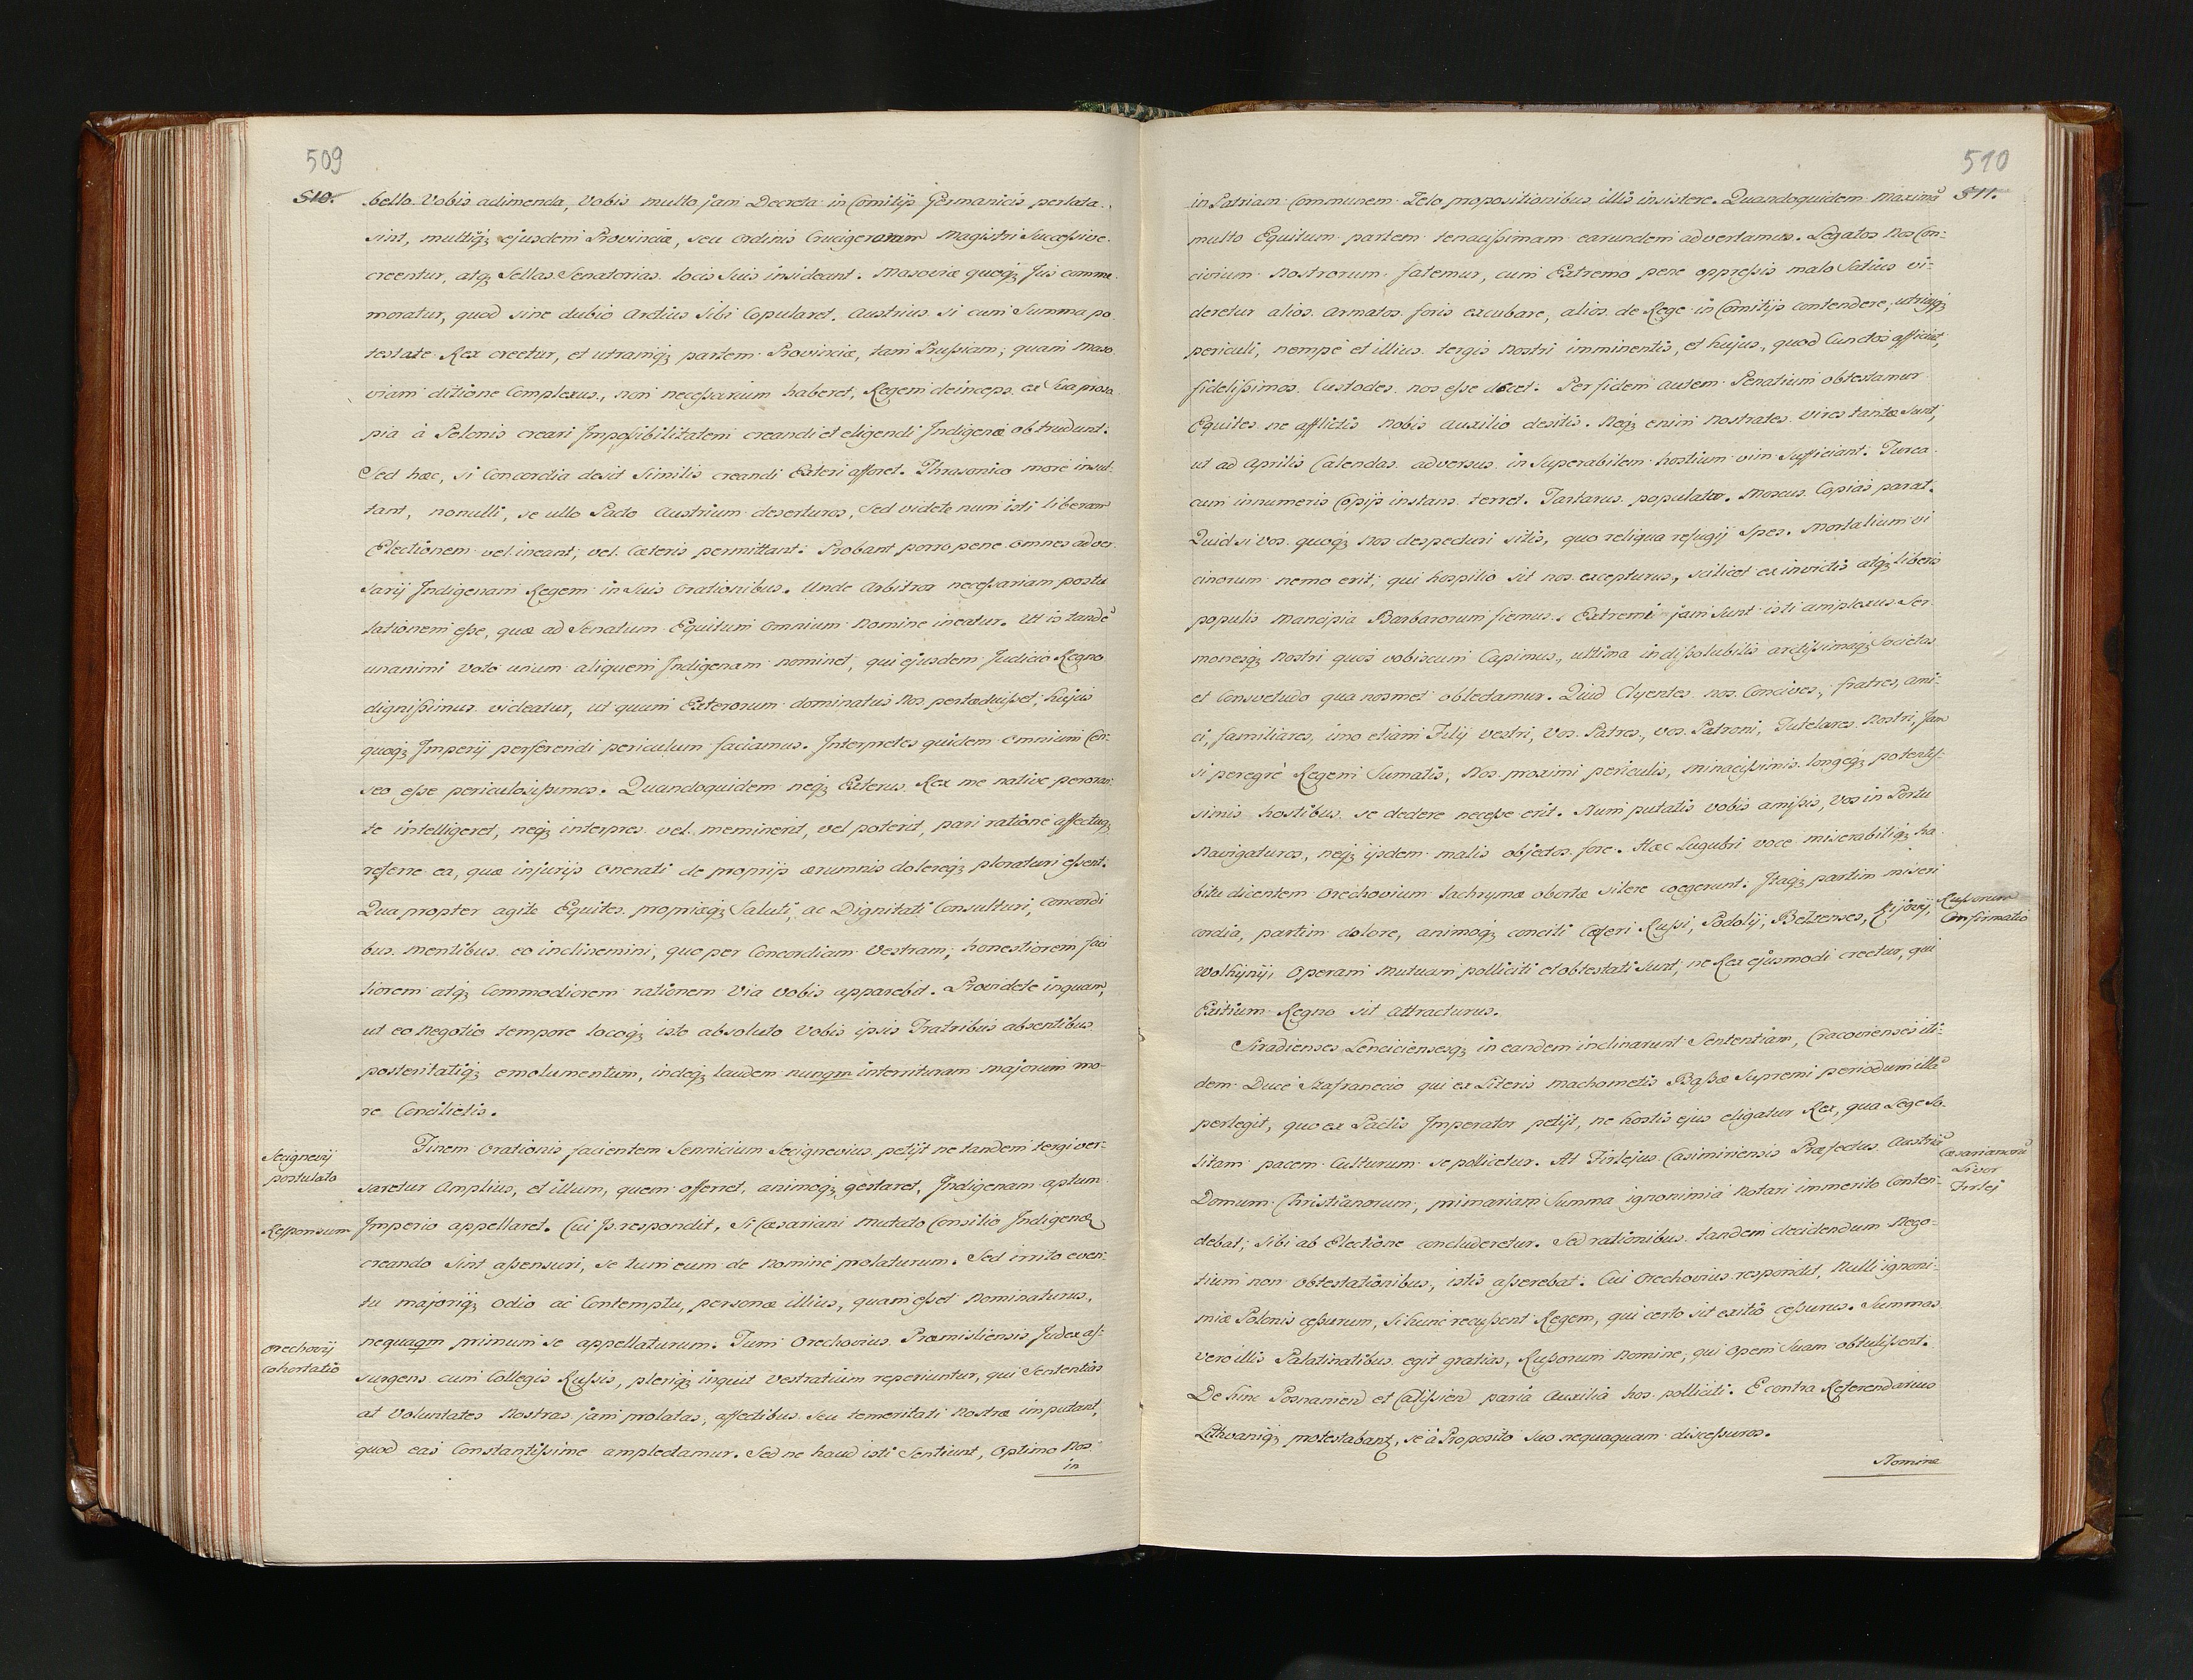 509
510.
bello Vobis adimenda, Vobis multo jam Decreta in Comitijs Germanicis perlata
sint, multiq; ejusdem Provinciæ, seu Ordinis Crucigerorum Magistri Successive
creentur, atq; Sellas Senatorias locis Suis insideant. Masoviæ quoq; Jus comme
moratur, quod sine dubio Arctius Sibi Copularet Austrius si cum Summa po
testate Rex creetur, et utramq; partem Provinciæ, tam Prußiam; quam Maso
viam ditione Complexus, non neceßarium haberet, Regem deinceps ex Sua prosa
pia à Polonis creari Impoßibilitatem creandi et eligendi Indigenæ obtrudunt.
Sed hæc, si Concordia desit Similis creandi Exteri afforet. Thrasonico more insul-
tant, nonulli, se ullo Pacto Austrium deserturos, Sed videte num isti liberam
Electionem vel ineant; vel Cæteris permittant: Probant porro pene omnes adver
sarij Indigenam Regem in Suis Orationibus. Unde Arbitror neceßariam postu
lationem eße, quæ ad Senatum Equitum Omnium Nomine ineatur. Ut is tandē
unanimi Voto unum aliquem Indigenam nominet, qui ejusdem Judicio Regno
dignißimus videatur, ut quum Exterorum dominatus Nos pertæduißet; hujus
quoq; Imperij perferendi periculum faciamus. Interpretes quidem Omnium Cen-
seo eße periculosißimos. Quandoquidem neq; Exterus Rex me native peroran
te intelligeret, neq; interpres vel meminerit, vel poterit, pari ratione affectuq;
referre ea, quæ injurijs Onerati de proprijs ærumnis doloreq; ploraturi eßent.
Quapropter agite Equites propriæq; Saluti, ac Dignitati Consulturi, concordi
bus mentibus eo inclinemini, quo per Concordiam Vestram; honestiorem faci
liorem atq; Commodiorem rationem Via Vobis apparebit. Providete inquam,
ut eo Negotio tempore locoq; isto absoluto Vobis ipsis Fratribus absentibus
posteritatiq; emolumentum, indeq; laudem nunqm interrituram majorum mo-
re Concilietis.
Finem Orationis facientem Sennicium Secignevius petijt ne tandem tergiver-
saretur Amplius, et illum, quem offerret, animoq; gestaret, Indigenam aptum
Imperio appellaret. Cui Js respondit, Si Cæsariani Mutato Consilio Indigenæ
creando Sint aßensuri, se tum eum de Nomine prolaturum. Sed irrito even-
tu majoriq; Odio ac Contemptu, personæ illius, quam eßet Nominaturus,
nequaqm primum se appellaturum. Tum Orechovius Præmisliensis Judex aß-
surgens cum Collegis Rußis, pleriq; inquit Vestratium reperiuntur, qui Sententias
at Voluntates Nostras jam prolatas, affectibus Seu temeritati Nostræ imputant,
quod eas Constantißime amplectamur. Sed ne haud isti Sentiunt, Optimo Nos
in
Secignevij
postulata
Responsum
Orechovij
cohortatio
510
511.
in Patriam Communem Zelo propositionibus illis insistere. Quandoquidem Maximā
multo Equitum partem tenacißimam earundem advertamus. Legatos Nos Con-
civium Nostrorum fatemur, cum Extremo pene oppreßis malo Satius vi-
deretur alios Armatos foris excubare, alios de Rege in Comitijs Contendere, utriusq;
periculi, nempè et illius tergis Nostri imminentis, et hujus, quod Cunctos afficiat,
fidelißimos Custodes nos eße decet. Per fidem Autem Penatium obtestamur
Equites ne afflictis Nobis Auxilio desitis. Neq; enim Nostrates Vires tantæ Sunt,
ut ad Aprilis Calendas adversus inSuperabilem hostium vim Sufficiant. Turca
cum innumeris Copijs instans terret. Tartarus populatur. Moscus Copias parat.
Quid si Vos quoq; Nos despecturi sitis, quo reliqua refugij Spes. Mortalium vi
cinorum nemo erit, qui hospitio sit nos excepturus, scilicet ex invictis atq; liberis
populis Mancipia Barbarorum fiemus. Extremi jam Sunt isti amplexus Ser
monesq; Nostri quos vobiscum Capimus, ultima indißolubilis arctißimaq; Societas
et Consvetudo qua nosmet oblectamur. Quid Clyentes nos Concives, fratres, ami-
ci, familiares, imo etiam Filij vestri, Vos Patres, vos Patroni, Tutelares Nostri, Jam
si peregrè Regem Sumatis, Nos proximi periculis, minacißimis longeq; potentiß-
simis hostibus se dedere neceße erit. Num putatis vobis amißis, Vos in Portu
Navigaturos, neq; ijsdem malis objectos fore. Hæc Lugubri voce miserabiliq; ha
bitu dicentem Orechovium lachrymæ obortæ silere coegerunt. Itaq; partim miseri
cordia, partim dolore, animoq; conciti Cæteri Rußi, Podolij, Belzenses, Kijovij,
Wolhijnij, Operam Mutuam polliciti et obtestati Sunt, ne Rex ejusmodi creetur, qui
Exitium Regno sit Attracturus.
Siradienses Lenciciensesq; in eandem inclinarunt Sententiam, Cracovienses iti-
dem Duce Szafranecio qui ex Literis Machometis Baßæ Supremi periodum illā
perlegit, quo ex Pactis Imperator petijt, ne hostis ejus eligatur Rex, qua Lege So-
litam pacem Culturum se pollicetur. At Firlejus Casimiriensis Præfectus Austriā
Domum Christianorum, primariam Summa ignonimia Notari immerito Conten-
debat; Sibi ab Electione concluderetur. Sed rationibus tandem decidendum Nego-
tium non obtestationibus, istis aßerebat. Cui Orechovius respondit, Nulli ignoni-
miæ Polonis ceßurum, Si hunc recußent Regem, qui certo sit exitio ceßurus. Summas
vero illis Palatinatibus egit gratias, Rußorum Nomine, qui Opem Suam obtulißent.
De hinc Posnanien et Calißien paria Auxilia hos polliciti. E contra Referendarius
Lithvaniq; protestabant, se à Proposito suo nequaquam discessuros.
Nomine
Rußorum
Confirmatio
Cæsarianorū
Livor
Firlej